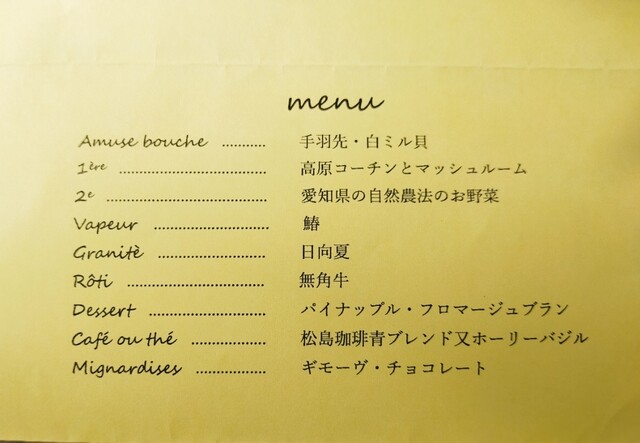 menu
Amuse bouche ........... 手羽先・白ミル貝
1ère .................................... 高原コーチンとマッシュルーム
2e ....................................... 愛知県の自然農法のお野菜
Vapeur ............................ 鰆
Granitè .......................... 日向夏
Rôti ................................. 無角牛
Dessert ............................ パイナップル・フロマージュブラン
Café ou thé .................. 松島珈琲青ブレンド又ホーリーバジル
Mignardises ................. ギモーヴ・チョコレート